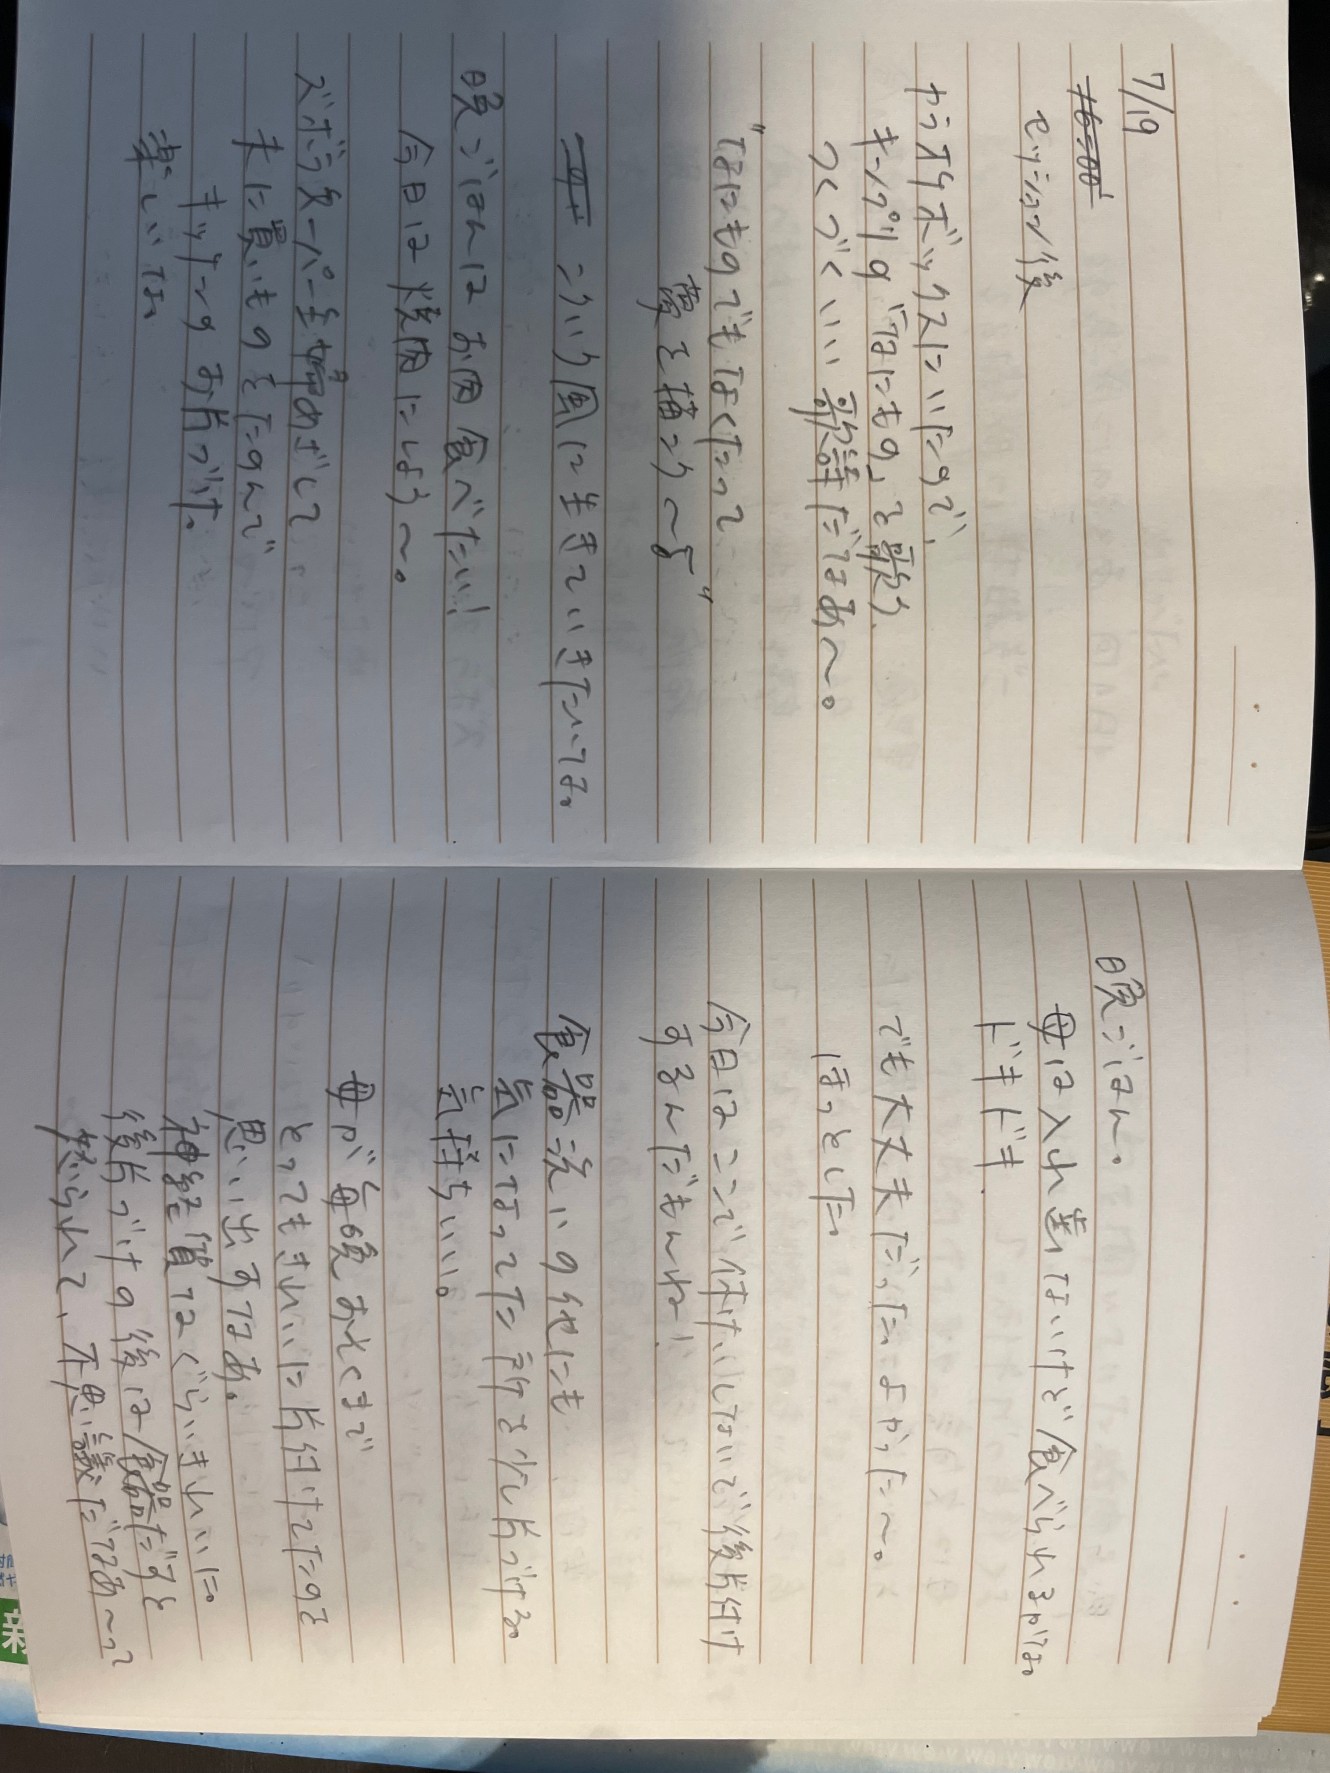 7/19
セッション後
カラオケボックスにいたので、
キンプリの「なにもの」を歌う。
つくづくいい歌詩だなあ〜。
"なにものでもなくたって
夢を描こう〜♪"
こういう風に生きていきたいな。
晩ごはんはお肉食べたい!
今日は焼肉にしよう〜。
ズボラスーパー主婦めざして、
夫に買いものをたのんで
キッチンのお片づけ。
楽しいな。
晩ごはん。
母は入れ歯ないけど食べられるかな。
ドキドキ
でも大丈夫だった。よかった〜。
ほっとした
今日はここで休けいしないで後片付け
するんだもんね!
食器洗いの他にも
気になってた所を少し片づける。
気持ちいい。
母が毎晩おそくまで
とってもきれいに片付けてたのを
思い出すなあ。
神経質なくらいきれいに。
後片づけの後は食器だすと
怒られて、不思議だなあ〜って